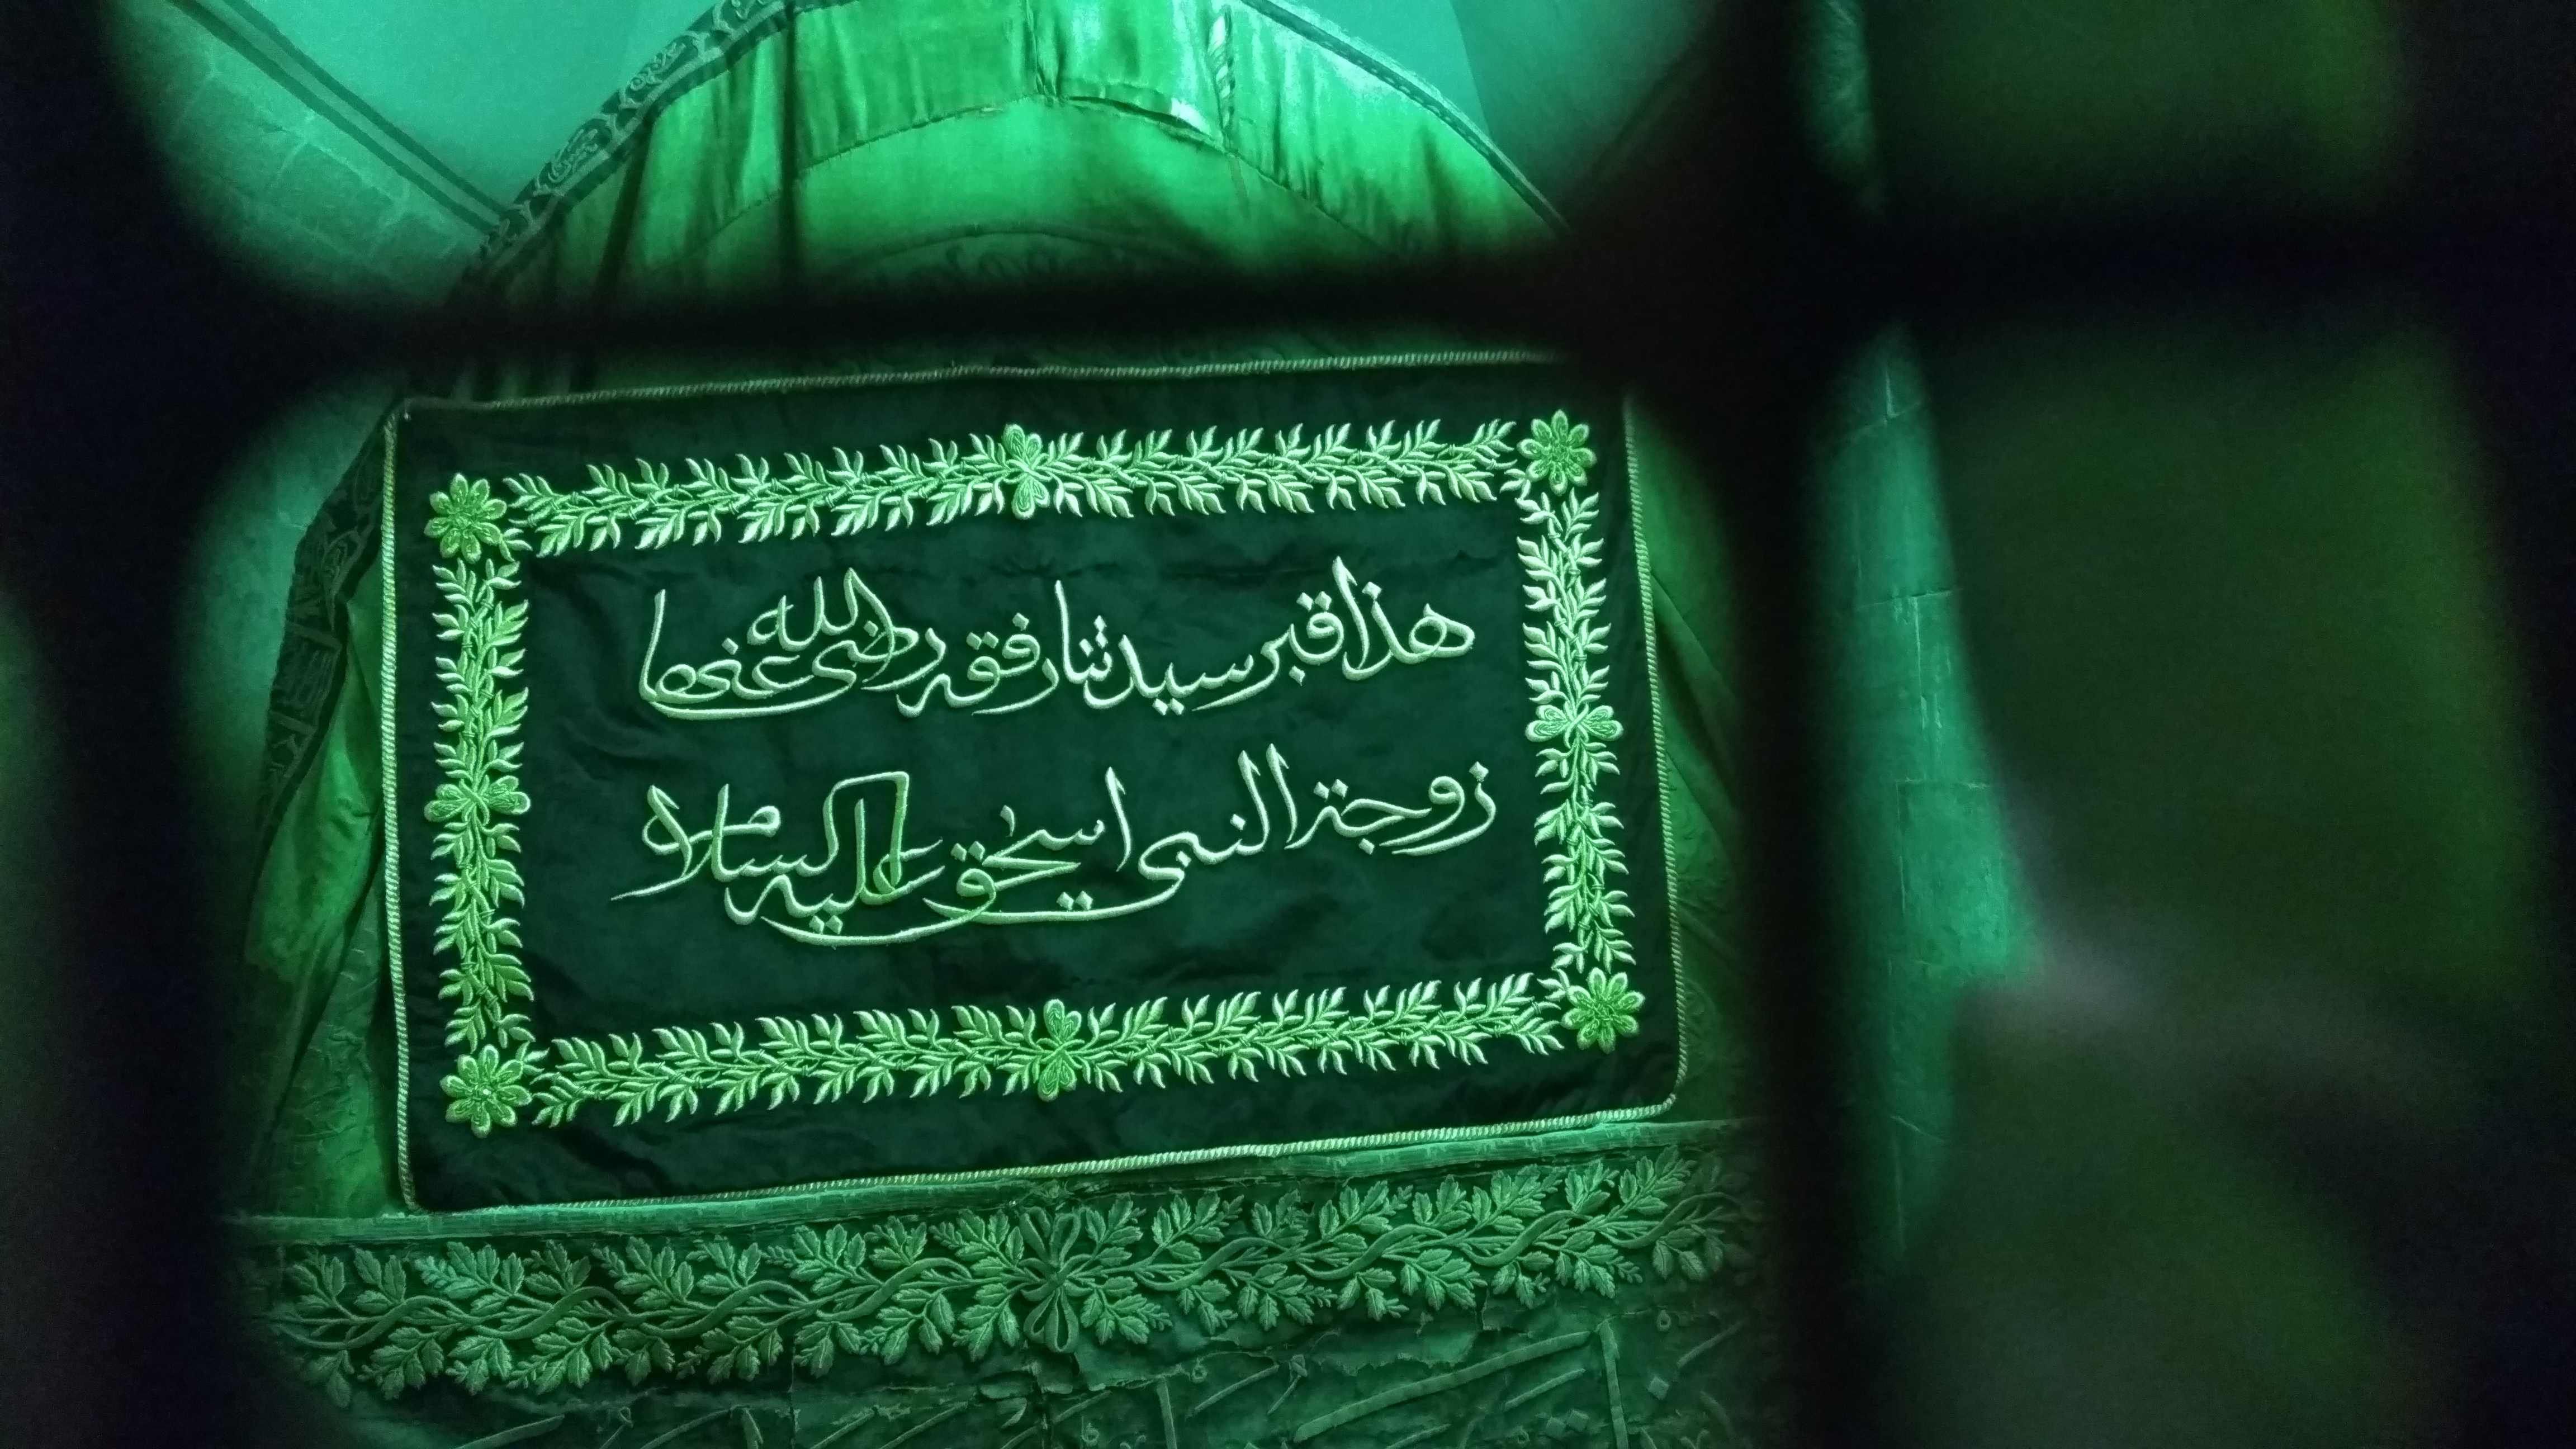 هذا قبر سيدتنا رفقه رضي الله عنها
زوجة النبي اسحق عليه السلام